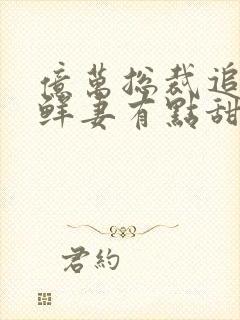 億萬總裁追
鮮妻有點甜
君約